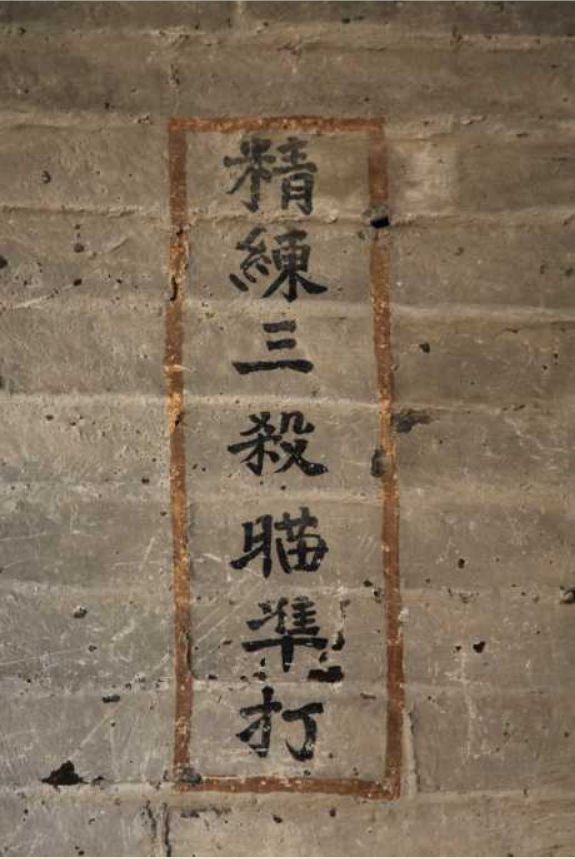 精練三殺瞄準打